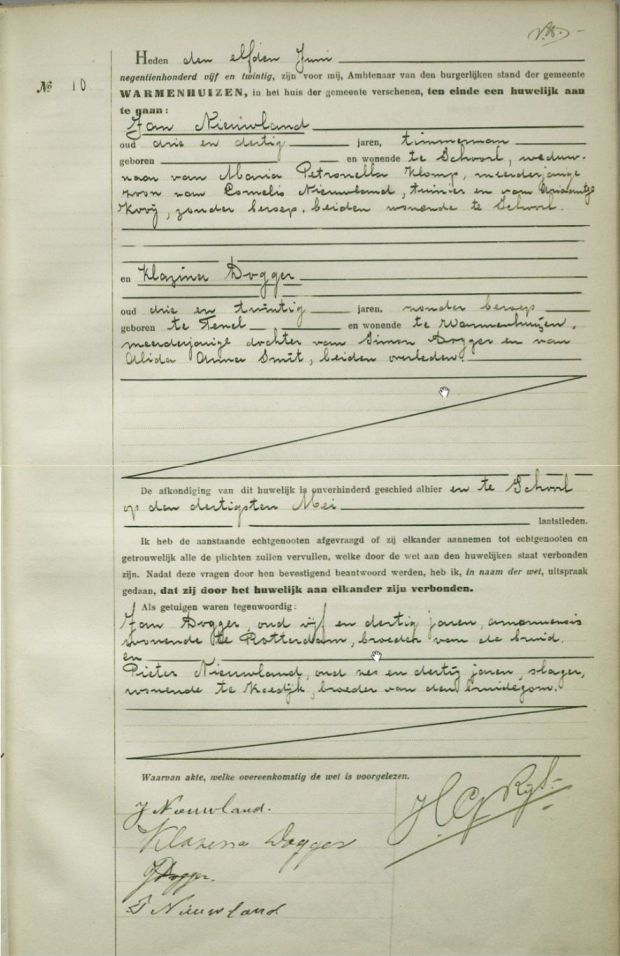 Heden den elfden Juni
negentienhonderd vijf en twintig, zijn voor mij, Ambtenaar van den burgerlijken stand der gemeente
№ 10
WARMENHUIZEN, in het huis der gemeente verschenen, ten einde een huwelijk aan
te gaan:
Jan Nieuwland
oud drie en dertig jaren, timmerman
geboren en wonende te Schoorl, weduw-
naar van Maria Petronella Klomp, meerderjarige
zoon van Cornelis Nieuwland, tuinier en van
Kooij, zonder beroep, beiden wonende te Schoorl.
en Klazina Dogger
oud drie en twintig jaren, zonder beroep
geboren te Texel en wonende te Warmenhuizen,
meerderjarige dochter van Simon Dogger en van
Alida Anna Smit, beiden overleden.
De afkondiging van dit huwelijk is onverhinderd geschied alhier en te Schoorl
op den dertigsten Mei
laatstleden.
Ik heb de aanstaande echtgenooten afgevraagd of zij elkander aannemen tot echtgenooten en
getrouwelijk alle de plichten zullen vervullen, welke door de wet aan den huwelijken staat verbonden
zijn. Nadat deze vragen door hen bevestigend beantwoord werden, heb ik, in naam der wet, uitspraak
gedaan, dat zij door het huwelijk aan elkander zijn verbonden.
Als getuigen waren tegenwoordig:
Jan Dogger, oud vijf en dertig jaren,
wonende te Rotterdam, broeder van de bruid.
en
Pieter Nieuwland, oud zes en dertig jaren, slager,
wonende te Koedijk, broeder van den bruidegom.
Waarvan akte, welke overeenkomstig de wet is voorgelezen.
J Nieuwland.
Klazina Dogger
J Dogger.
P Nieuwland